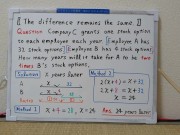 〚 The difference remains the same. 〛
Question Company C grants one stock option
to each employee each year. Employee A has
32 stock options. Employee B has 4 stock options.
How many years will it take for A to be two
times B's stock options.
Solution x years later
Method 2
2(x+4) = x+32
2x+8 = x+32
x = 24
Method 1
Ans. 24 years later